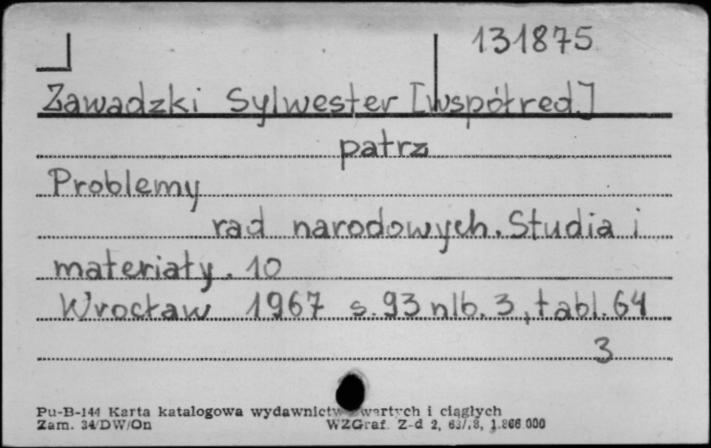 131875
Zawadzki Sylwester [współred.]
patrz
Problemy
rad narodowych. Studia i
materiały. 10
Wrocław 1967 s. 93 nlb. 3, tabl. 64
3
Pu-B-144 Karta katalogowa wydawnictw zwartych i ciągłych
Zam. 34/DW/On WZGraf. Z-d 2,